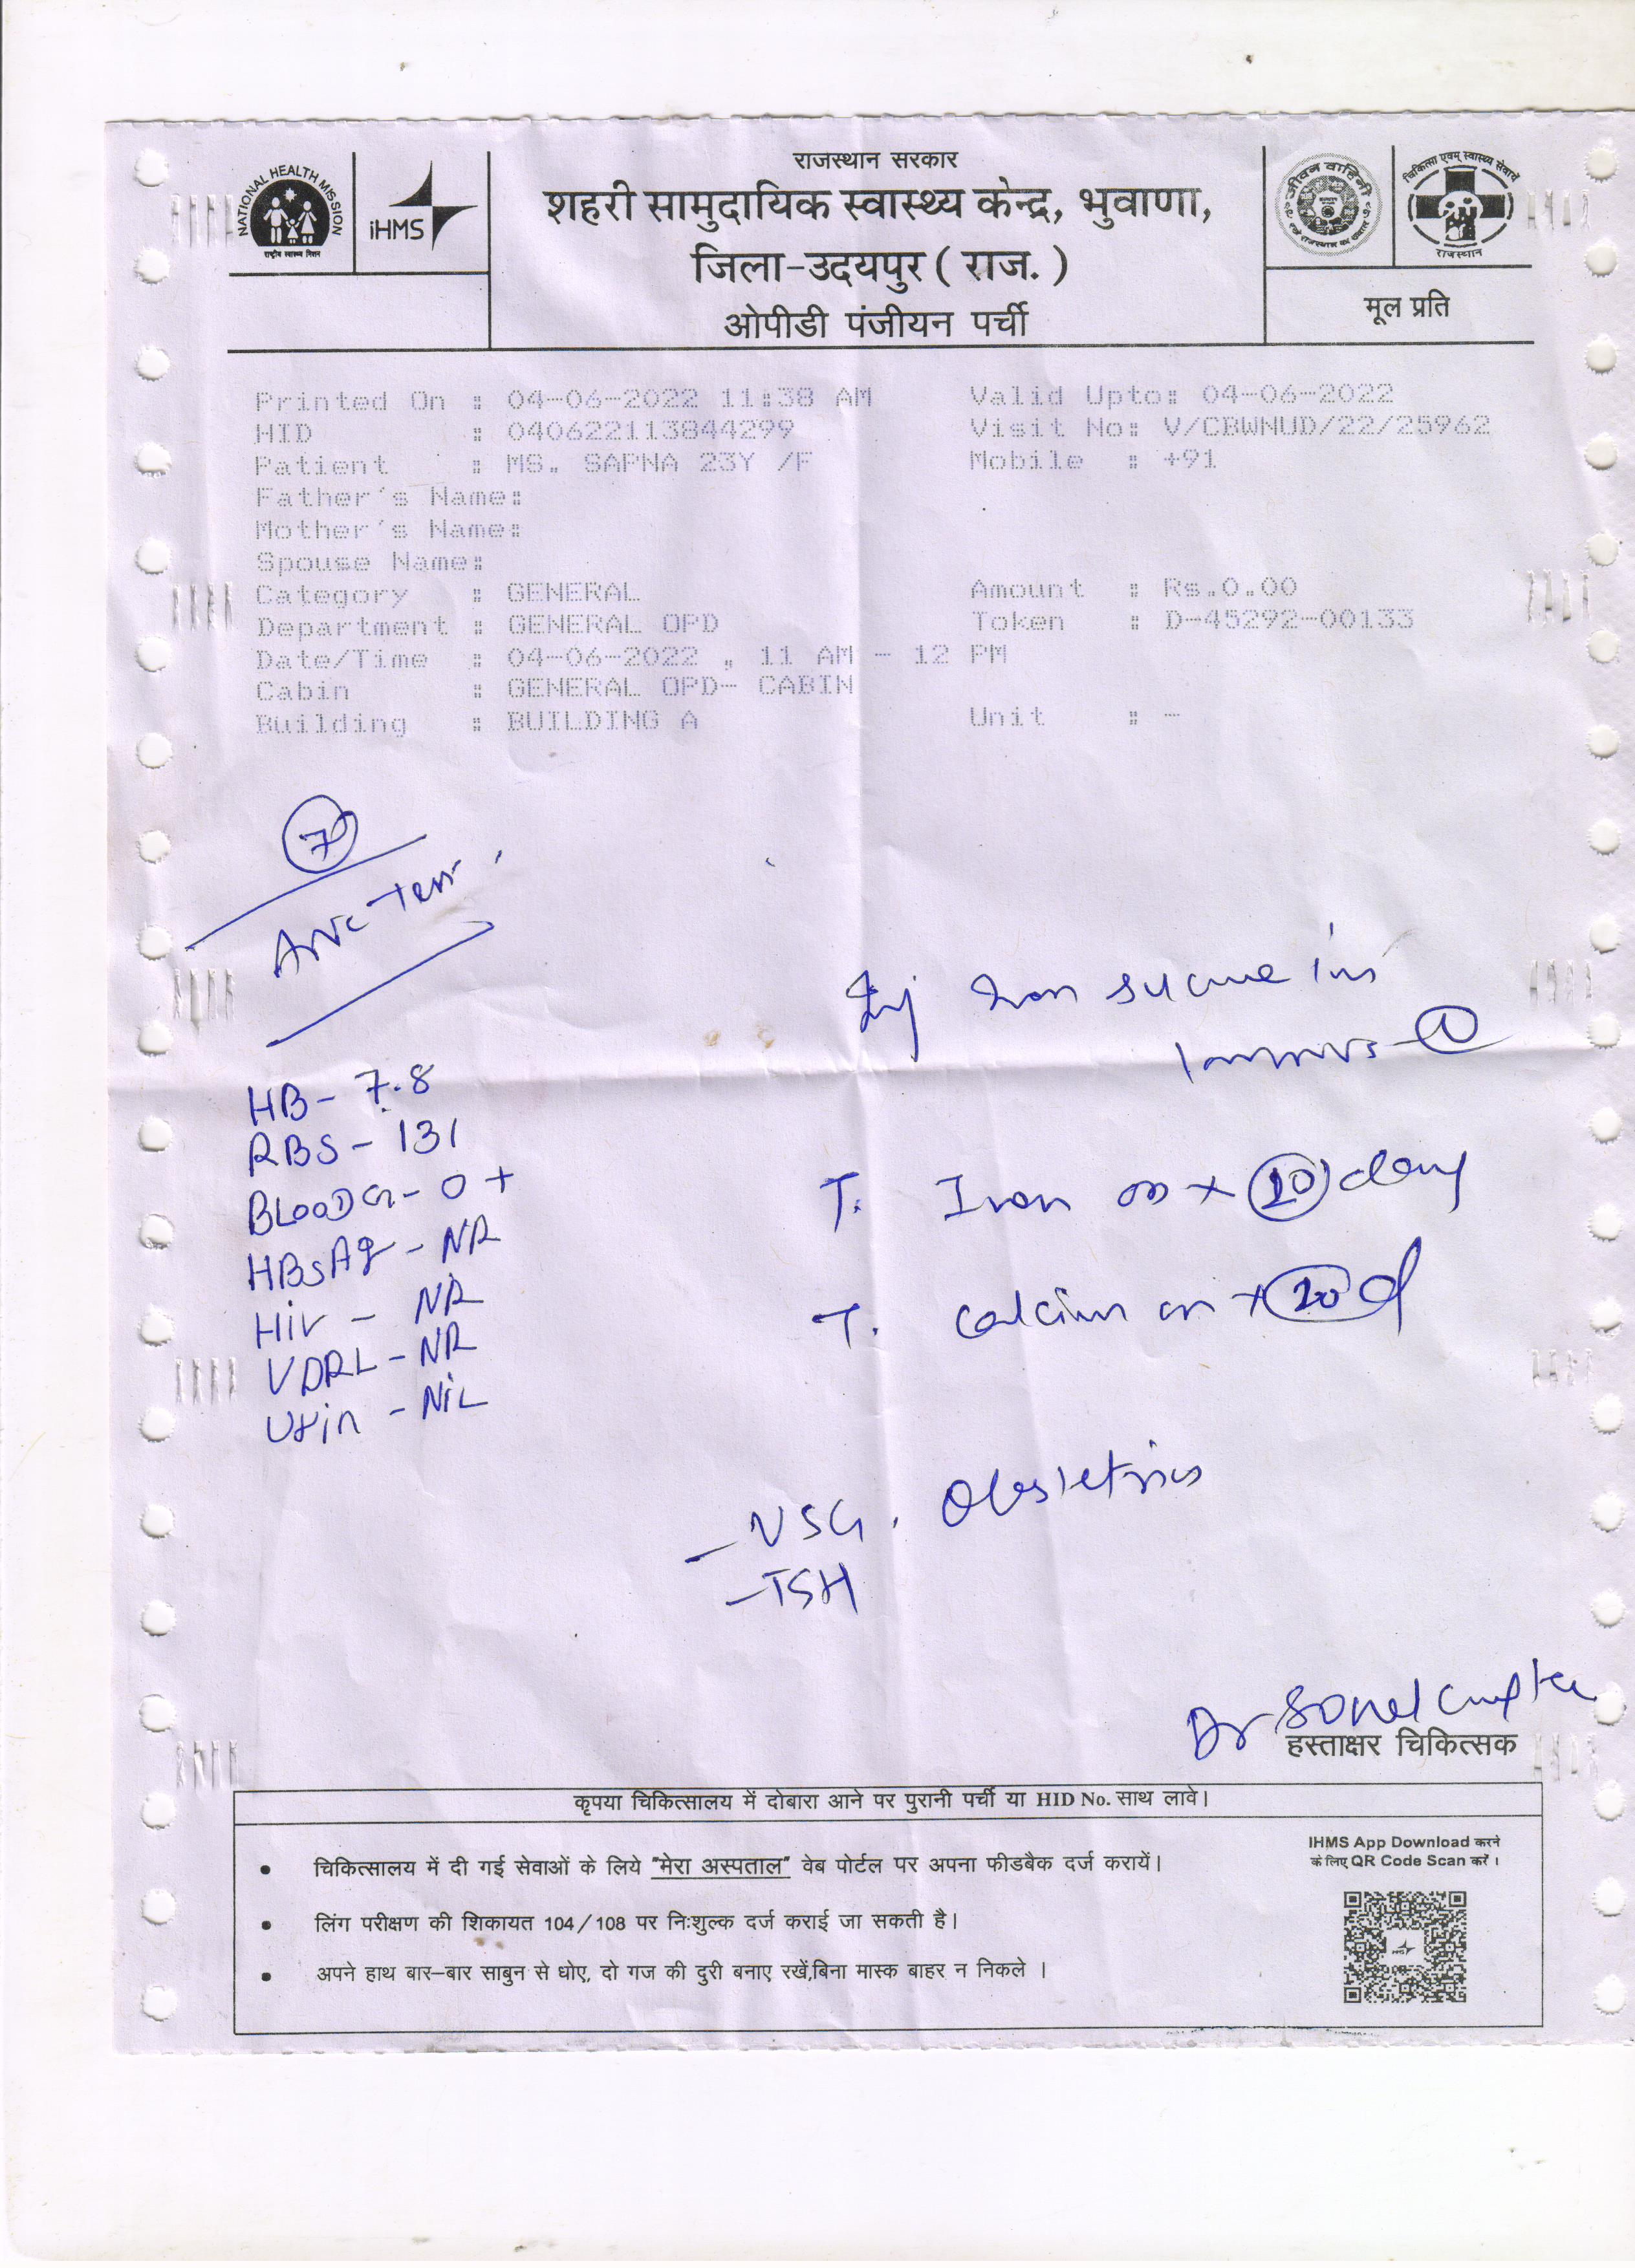 NATIONAL HEALTH MISSION
राष्ट्रीय स्वास्थ्य मिशन
iHMS
राजस्थान सरकार
शहरी सामुदायिक स्वास्थ्य केन्द्र, भुवाणा,
जिला-उदयपुर ( राज. )
ओपीडी पंजीयन पर्ची
चिकित्सा एवम् स्वास्थ्य सेवायें
राजस्थान
मूल प्रति
Printed On : 04-06-2022 11:38 AM Valid Upto: 04-06-2022
HID : 040622113844299 Visit No: V/CBWNUD/22/25962
Patient : MS. SAPNA 23Y /F Mobile : +91
Father's Name:
Mother's Name:
Spouse Name:
Category : GENERAL Amount : Rs.0.00
Department : GENERAL OPD Token : D-45292-00133
Date/Time : 04-06-2022 , 11 AM - 12 PM
Cabin : GENERAL OPD- CABIN
Building : BUILDING A Unit : -
7
ANC Test
Inj Iron sucrose in
HB - 7.8
RBS - 131
BLOOD G - O +
HBsAg - NR
Hiv - NR
VDRL - NR
Urin - NiL
T. Iron OD x 20 day
T. Calcium OD x 20 d
- USG. Obstetrics
- TSH
Dr Sonal Gupta
हस्ताक्षर चिकित्सक
कृपया चिकित्सालय में दोबारा आने पर पुरानी पर्ची या HID No. साथ लावे।
• चिकित्सालय में दी गई सेवाओं के लिये "मेरा अस्पताल" वेब पोर्टल पर अपना फीडबैक दर्ज करायें।
• लिंग परीक्षण की शिकायत 104/108 पर निःशुल्क दर्ज कराई जा सकती है।
• अपने हाथ बार-बार साबुन से धोए, दो गज की दुरी बनाए रखें,बिना मास्क बाहर न निकले ।
IHMS App Download करने
के लिए QR Code Scan करें ।